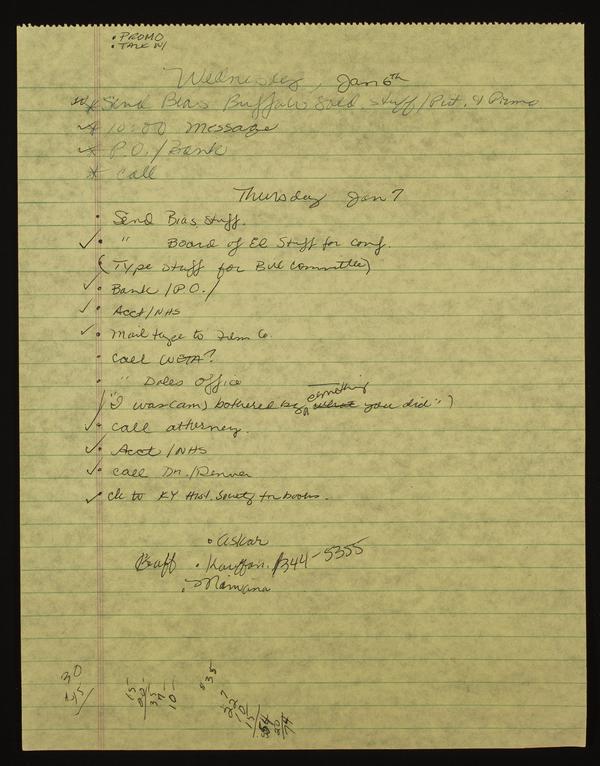 • PROMO
• TALK W/
Wednesday, Jan 6th
* Send Bias Buffalo Sold. stuff / Pict. & Promo
* 10:00 message
* P.O. / Bank
* Call
Thursday Jan 7
• Send Bias stuff.
• " Board of El Stuff for conf.
(Type stuff for Bul Committee)
• Bank / P.O. /
• Acct / NHS
• Mail tape to Film Co.
• Call WETA?
• " Doles office
("I was (am) bothered by something what you did")
• Call attorney.
• Acct / NHS
• Call Dr. / Denver
• Ck to KY Hist. Society for books.
• Askar
• 344-5355
30
15
35
10
35
54
20
74